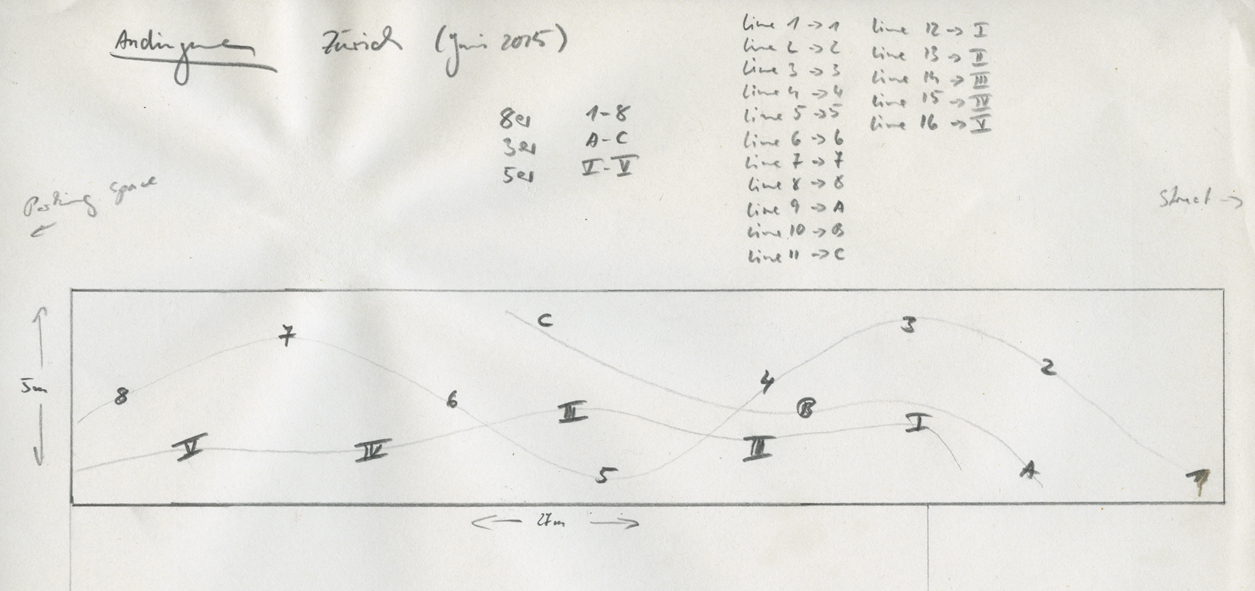 Zürich (Juni 2015)
8er 1-8
3er A-C
5er I-V
Line 1 → 1
Line 2 → 2
Line 3 → 3
Line 4 → 4
Line 5 → 5
Line 6 → 6
Line 7 → 7
Line 8 → 8
Line 9 → A
Line 10 → B
Line 11 → C
Line 12 → I
Line 13 → II
Line 14 → III
Line 15 → IV
Line 16 → V
Parking space
←
Street →
5m
C
3
7
2
4
8
6
B
III
I
V
IV
III
A
5
1
← 27m →